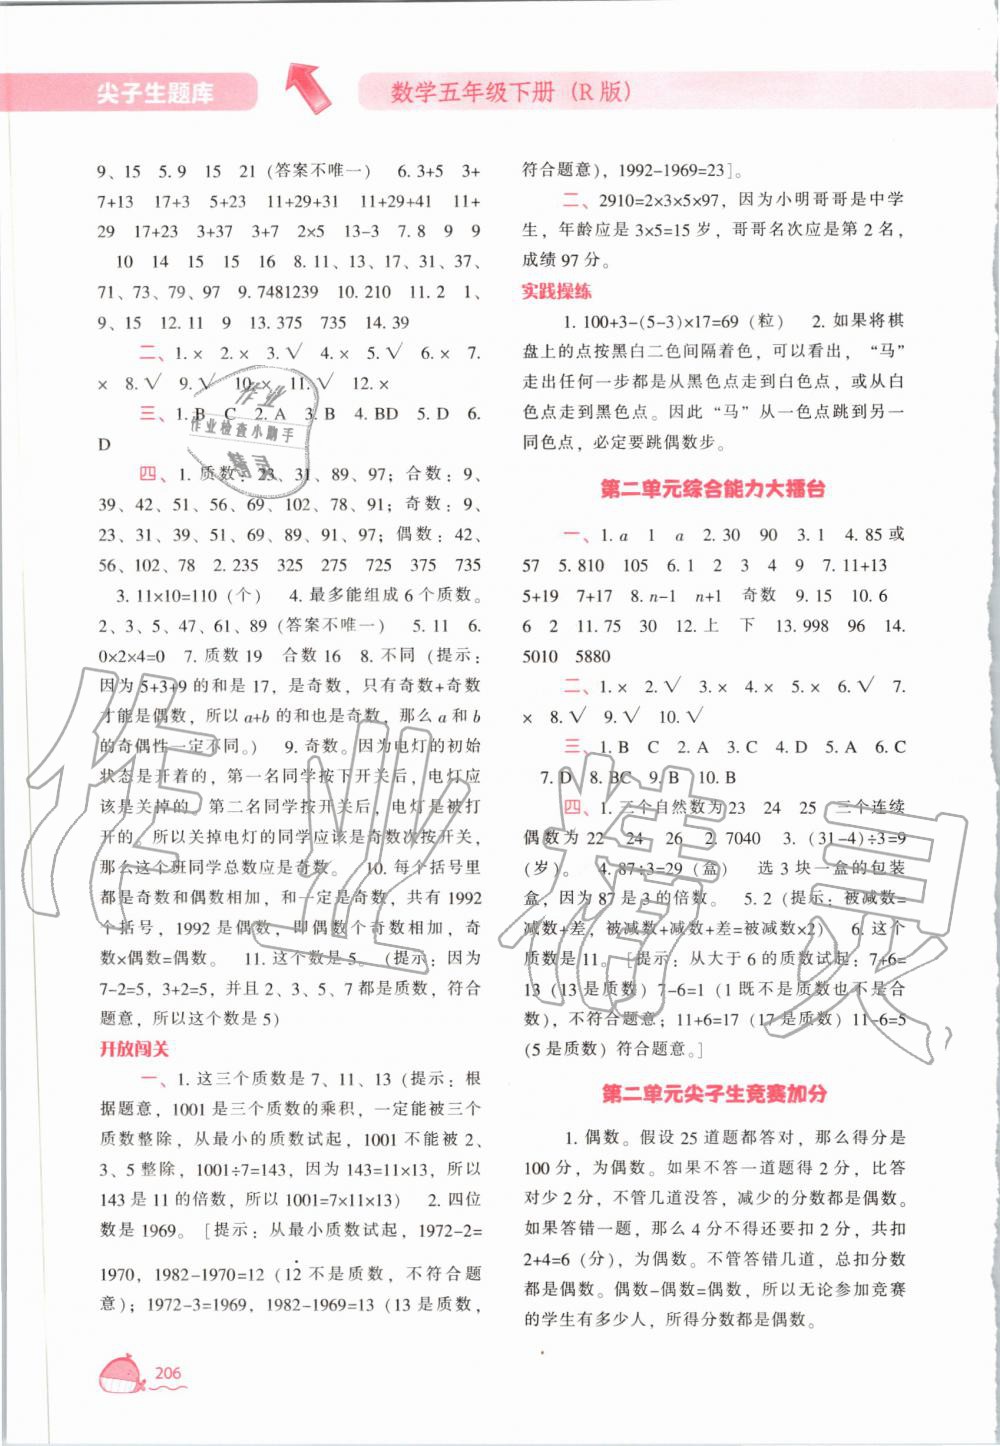 尖子生题库
数学五年级下册（R版）
9、15 5.9 15 21（答案不唯一） 6.3+5 3+
7+13 17+3 5+23 11+29+31 11+29+41 11+
29 17+23 3+37 3+7 2×5 13-3 7.8 9 9
10 14 15 15 15 16 8.11、13、17、31、37、
71、73、79、97 9.7481239 10.210 11.2 1、
9、15 12.11 9 13.375 735 14.39
二、1.× 2.× 3.√ 4.× 5.√ 6.× 7.
× 8.√ 9.√ 10.× 11.√ 12.×
三、1.B C 2.A 3.B 4.BD 5.D 6.
D
四、1.质数：23、31、89、97；合数：9、
39、42、51、56、69、102、78、91；奇数：9、
23、31、39、51、69、89、91、97；偶数：42、
56、102、78 2.235 325 275 725 375 735
3.11×10=110（个） 4.最多能组成6个质数。
2、3、5、47、61、89（答案不唯一） 5.11 6.
0×2×4=0 7.质数19 合数16 8.不同（提示：
因为5+3+9的和是17，是奇数，只有奇数+奇数
才能是偶数，所以a+b的和也是奇数，那么a和b
的奇偶性一定不同。） 9.奇数。因为电灯的初始
状态是开着的，第一名同学按下开关后，电灯应
该是关掉的，第二名同学按开关后，电灯是被打
开的，所以关掉电灯的同学应该是奇数次按开关，
那么这个班同学总数应是奇数。 10.每个括号里
都是奇数和偶数相加，和一定是奇数，共有1992
个括号，1992是偶数，即偶数个奇数相加，奇
数×偶数=偶数。 11.这个数是5。（提示：因为
7-2=5，3+2=5，并且2、3、5、7都是质数，符合
题意，所以这个数是5）
开放闯关
一、1.这三个质数是7、11、13（提示：根
据题意，1001是三个质数的乘积，一定能被三个
质数整除，从最小的质数试起，1001不能被2、
3、5整除，1001÷7=143，因为143=11×13，所以
143是11的倍数，所以1001=7×11×13） 2.四位
数是1969。［提示：从最小质数试起，1972-2=
1970，1982-1970=12（12不是质数，不符合题
意）；1972-3=1969，1982-1969=13（13是质数，
206
符合题意），1992-1969=23］。
二、2910=2×3×5×97，因为小明哥哥是中学
生，年龄应是3×5=15岁，哥哥名次应是第2名，
成绩97分。
实践操练
1.100+3-(5-3)×17=69（粒） 2.如果将棋
盘上的点按黑白二色间隔着色，可以看出，“马”
走出任何一步都是从黑色点走到白色点，或从白
色点走到黑色点。因此“马”从一色点跳到另一
同色点，必定要跳偶数步。
第二单元综合能力大擂台
一、1.a 1 a 2.30 90 3.1 4.85或
57 5.810 105 6.1 2 3 4 9 7.11+13
5+19 7+17 8.n-1 n+1 奇数 9.15 10.6
6 2 11.75 30 12.上 下 13.998 96 14.
5010 5880
二、1.× 2.√ 3.× 4.× 5.√ 6.√ 7.
× 8.√ 9.√ 10.√
三、1.B C 2.A 3.C 4.D 5.A 6.C
7.D 8.BC 9.B 10.B
四、1.三个自然数为23 24 25 三个连续
偶数为22 24 26 2.7040 3.(31-4)÷3=9
（岁）。 4.87÷3=29（盒） 选3块一盒的包装
盒，因为87是3的倍数。 5.2（提示：被减数=
减数+差，被减数+减数+差=被减数×2） 6.这个
质数是11。［提示：从大于6的质数试起：7+6=
13（13是质数）7-6=1（1既不是质数也不是合
数），不符合题意；11+6=17（17是质数）11-6=5
（5是质数）符合题意。］
第二单元尖子生竞赛加分
1.偶数。假设25道题都答对，那么得分是
100分，为偶数。如果不答一道题得2分，比答
对少2分，不管几道没答，减少的分数都是偶数。
如果答错一题，那么4分不得还要扣2分，共扣
2+4=6（分），为偶数。不管答错几道，总扣分数
都是偶数。偶数-偶数=偶数，所以无论参加竞赛
的学生有多少人，所得分数都是偶数。
作业
作业检查小助手
精灵
作业精灵